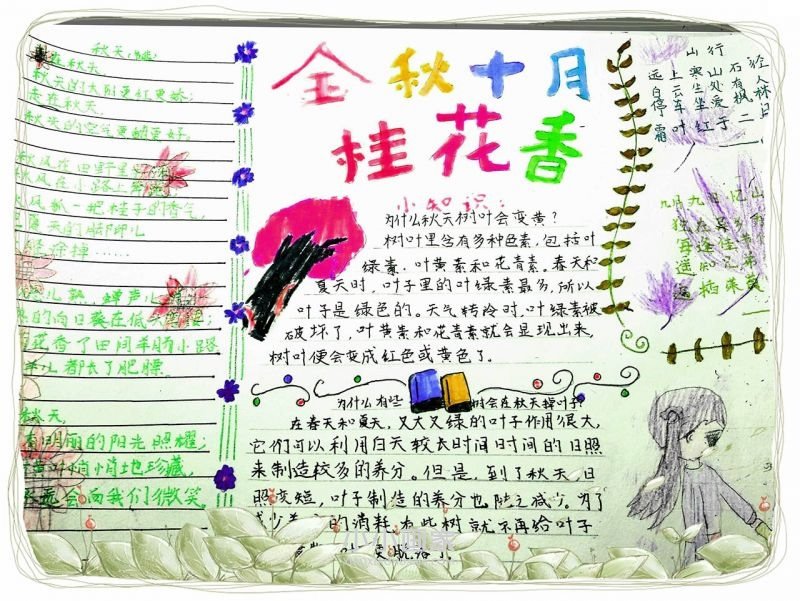 金秋十月
桂花香
秋天
走在秋天
秋天的太阳更红更娇
走在秋天
秋天的空气更甜更好
秋风在田野里
秋风在小路上奔跑
秋风抓一把桂子的香气
把夏天的脚印儿
轻轻涂掉……
蝉声儿
的向日葵在低头
花香了田间羊肠小路
都长了肥膘
秋天
明丽的阳光照耀
叶悄悄地珍藏
永远会向我们微笑
小知识:
为什么秋天树叶会变黄?
树叶里含有多种色素,包括叶
绿素、叶黄素和花青素。春天和
夏天时,叶子里的叶绿素最多,所以
叶子是绿色的。天气转冷时,叶绿素被
破坏了,叶黄素和花青素就会显现出来,
树叶便会变成红色或黄色了。
为什么有些树会在秋天掉叶子?
在春天和夏天,又大又绿的叶子作用很大,
它们可以利用白天较长时间时间的日照
来制造较多的养分。但是,到了秋天,日
照变短,叶子制造的养分也随之减少。为了
减少养的消耗,有些树就不再给叶子
山行
远上寒山石
白云生处有人
停车坐爱枫林
霜叶红于二
九月九日忆山
独在异乡
每逢佳节
遥知兄弟
遍插茱萸
小小画家